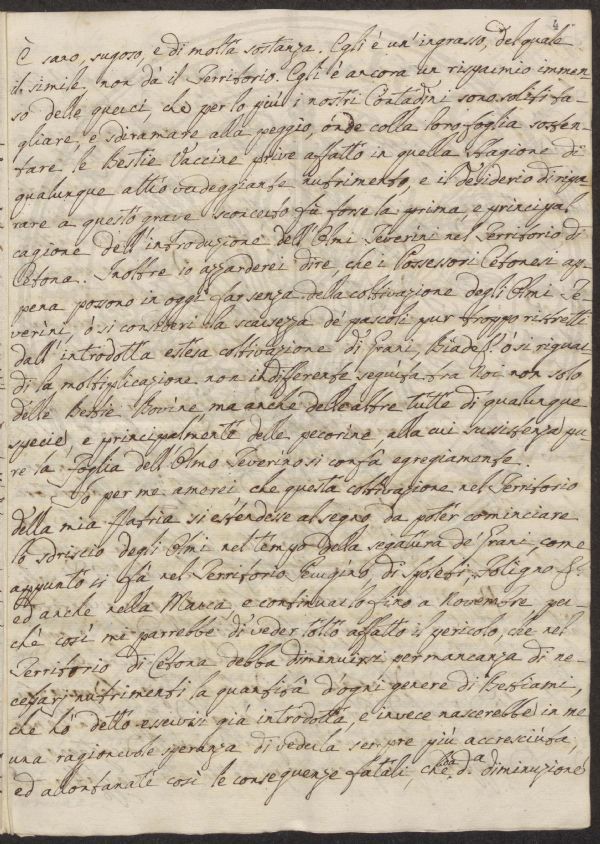 4
È sano, sugoso, e di molta sostanza. Egli è un'ingrasso, del quale
il simile, non dà il Territorio. Egli è ancora un risparmio immen-
so delle querci, che per lo più i nostri Contadini sono soliti ta-
gliare, e sdiramare alla peggio, onde colla loro foglia sosten-
tare le Bestie Vaccine prive affatto in quella Stagione di
qualunque altro verdeggiante nutrimento, e il desiderio di ripa-
rare a questo grave sconcerto fù forse la prima, e principal
cagione dell'introduzione dell'Olmi Teverini nel Territorio di
Cetona. Inoltre io azzarderei dire, che i Possessori Cetonesi ap-
pena possono in oggi far senza della coltivazione degli Olmi Te-
verini, ò si consideri la scarsezza de' pascoli pur troppo ristretti
dall'introdotta estesa coltivazione di Grani, Biade &. ò si riguar-
di la moltiplicazione non indifferente seguita fra Noi non solo
delle Bestie Bovine, ma anche delle altre tutte di qualunque
specie, e principalmente delle pecorine alla cui sussistenza pu-
re la Foglia dell'Olmo Teverino si confà egregiamente.
Io per me amerei che questa coltivazione nel Territorio
della mia Patria si estendesse al segno da poter cominciare
lo sdriscio degli Olmi nel tempo della segatura de' Grani, come
appunto si fà nel Territorio Perugino, di Spoleti, Foligno &c.
ed anche nella Marca, e continuarlo fino a Novembre per-
chè così mi parrebbe di veder tolto affatto il pericolo, che nel
Territorio di Cetona debba diminuirsi per mancanza di ne-
cessarj nutrimenti la quantità d'ogni genere di Bestiami,
che hò detto essersi già introdotta, e invece nascerebbe in me
una ragionevole speranza di vederla sempre più accresciuta,
ed allontanate così le conseguenze fatali, che la d.a diminuzione